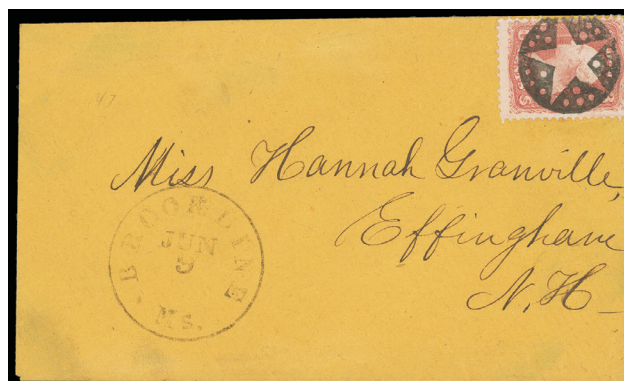 47
Miss Hannah Granville,
Effingham
N.H
BROOKLINE
JUN
9
Ms.